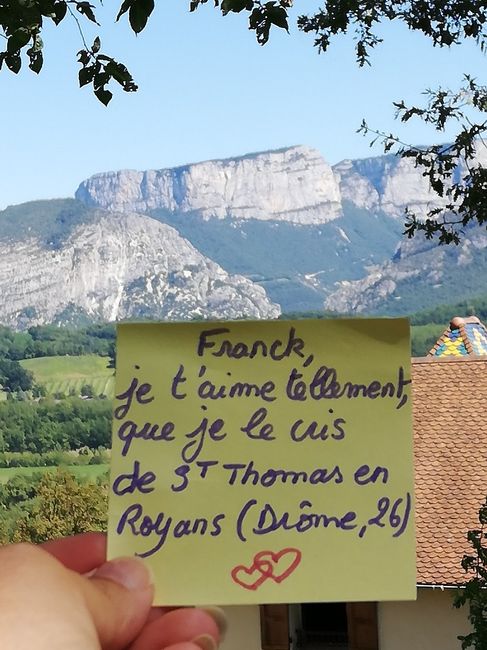 Franck,
je t'aime tellement,
que je le cris
de St Thomas en
Royans (Drôme, 26)